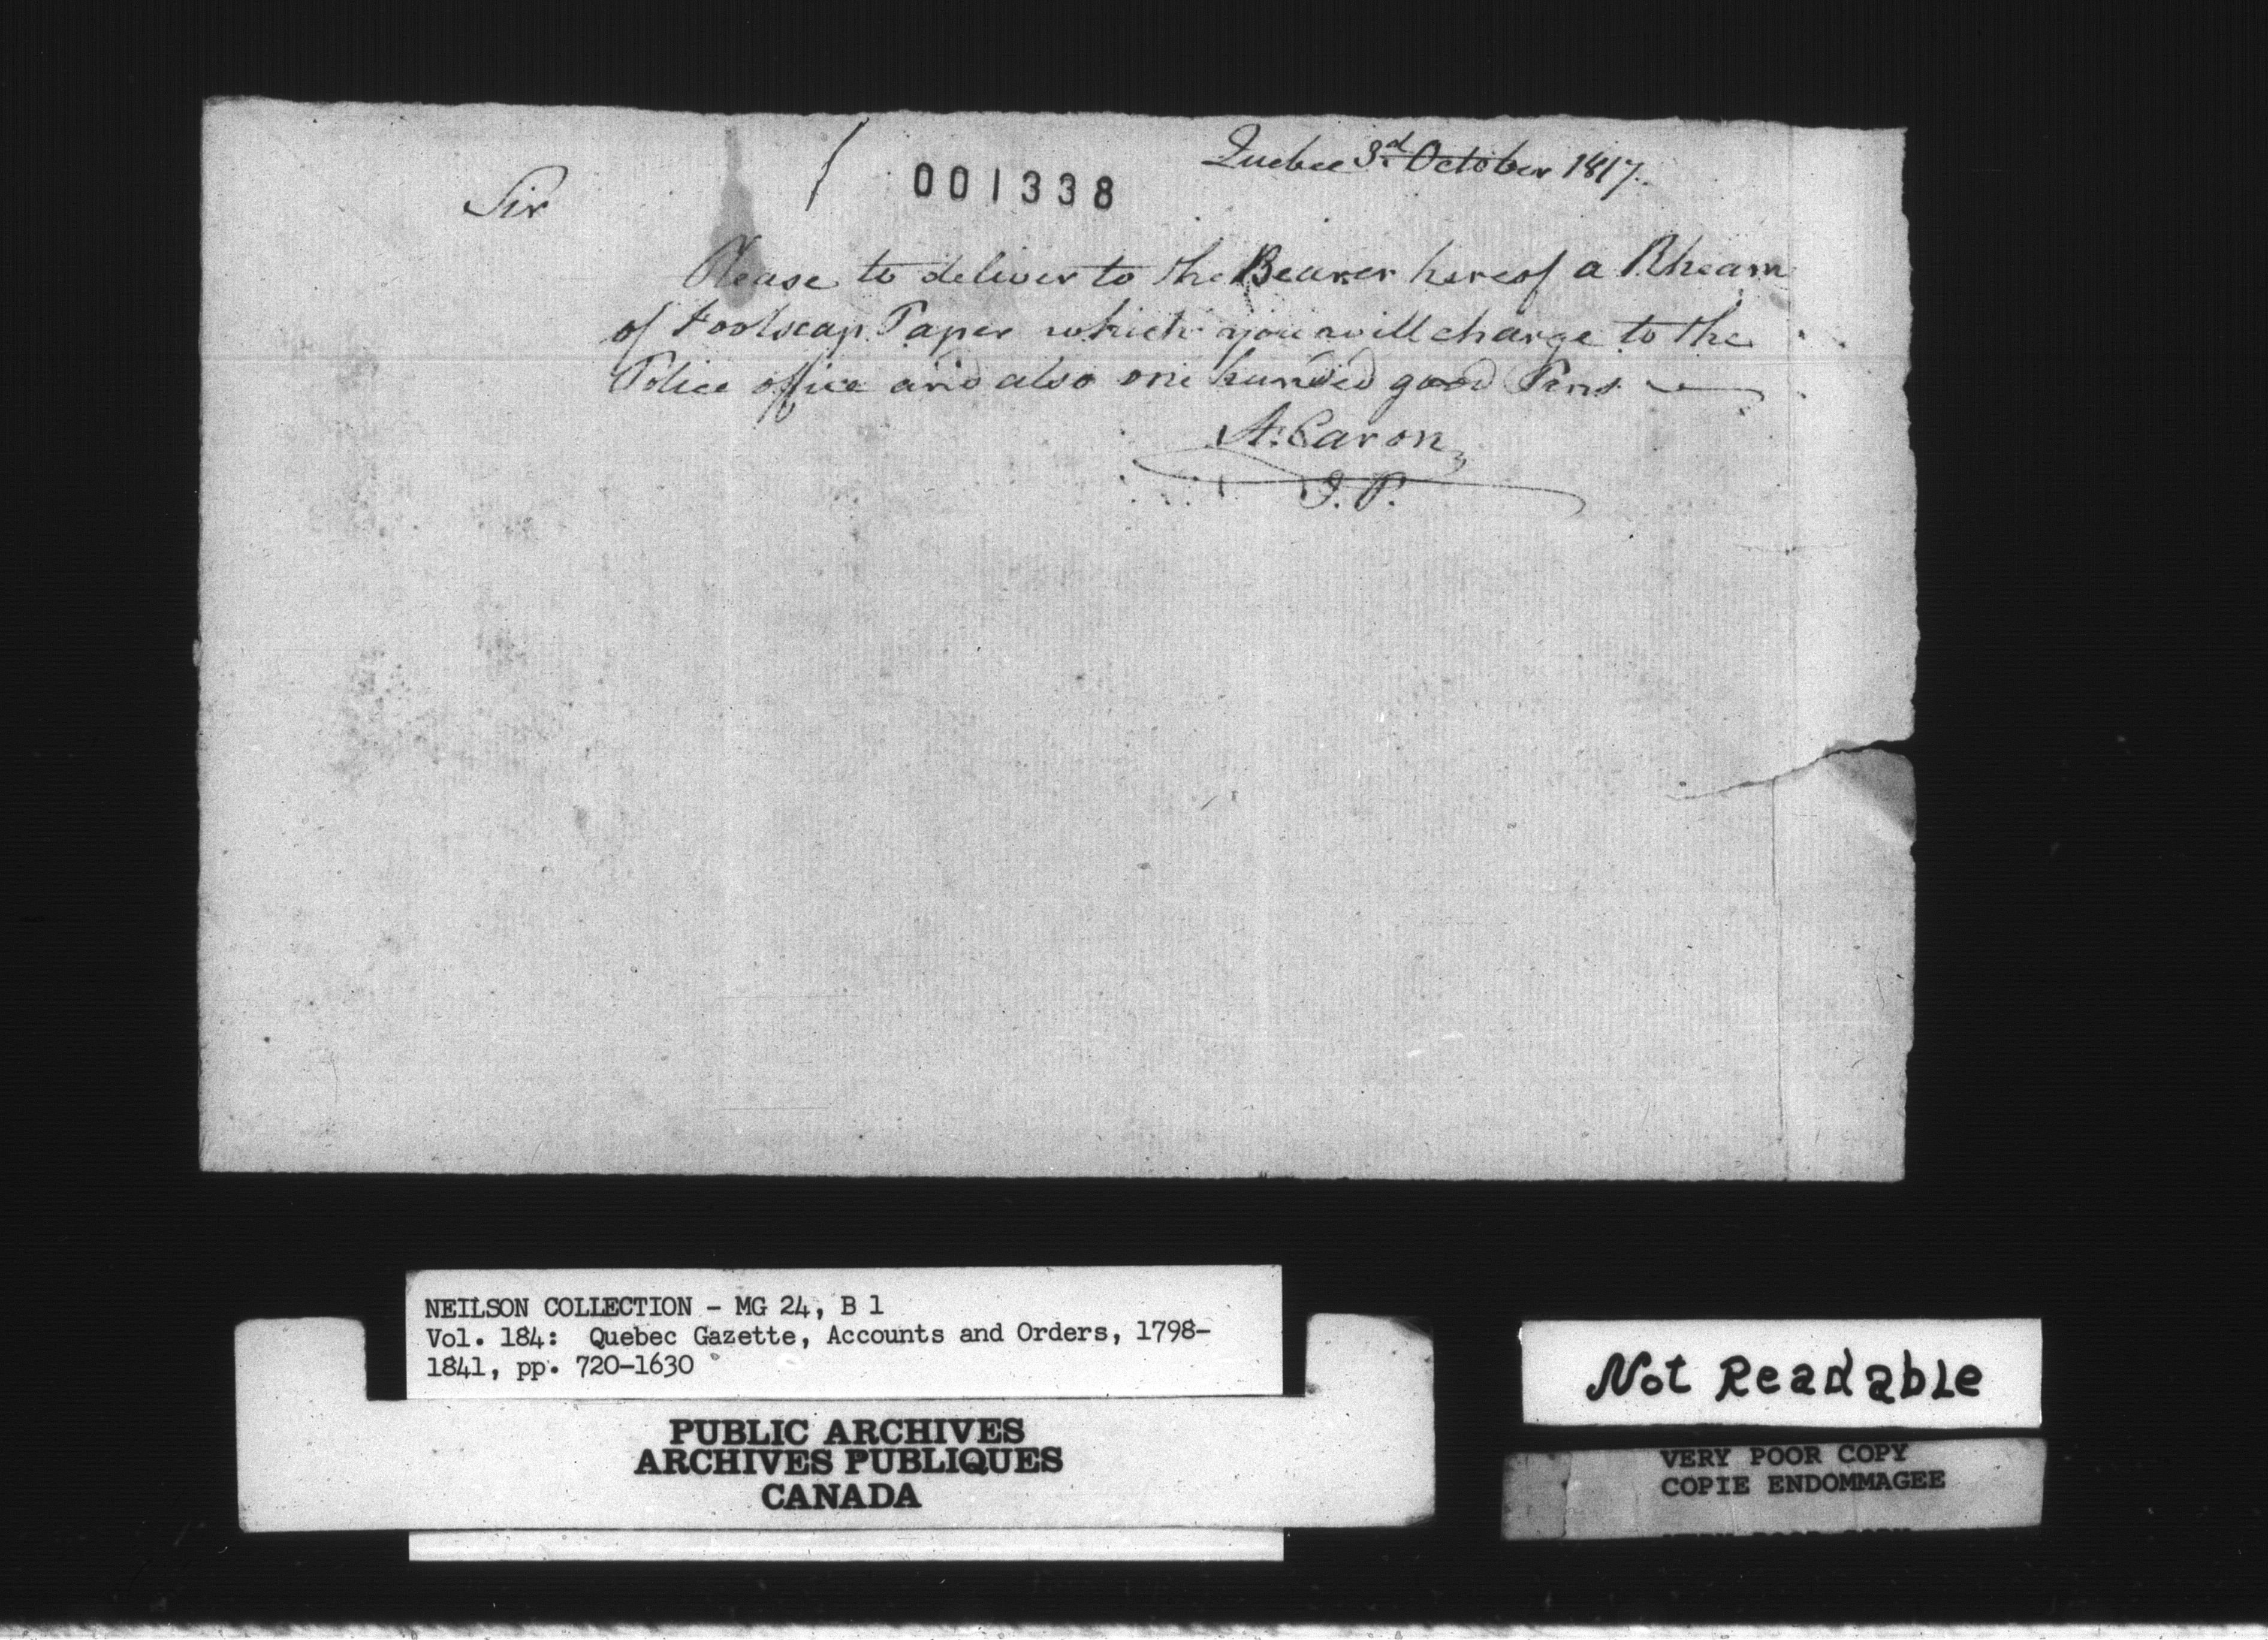 Quebec 3d October 1817.
001338
Sir
Please to deliver to the Bearer hereof a Rheam
of Foolscap Paper which you will charge to the
Police office and also one hundred good Pens
A. Caron
J. P.
NEILSON COLLECTION - MG 24, B 1
Vol. 184: Quebec Gazette, Accounts and Orders, 1798-
1841, pp. 720-1630
PUBLIC ARCHIVES
ARCHIVES PUBLIQUES
CANADA
Not Readable
VERY POOR COPY
COPIE ENDOMMAGEE